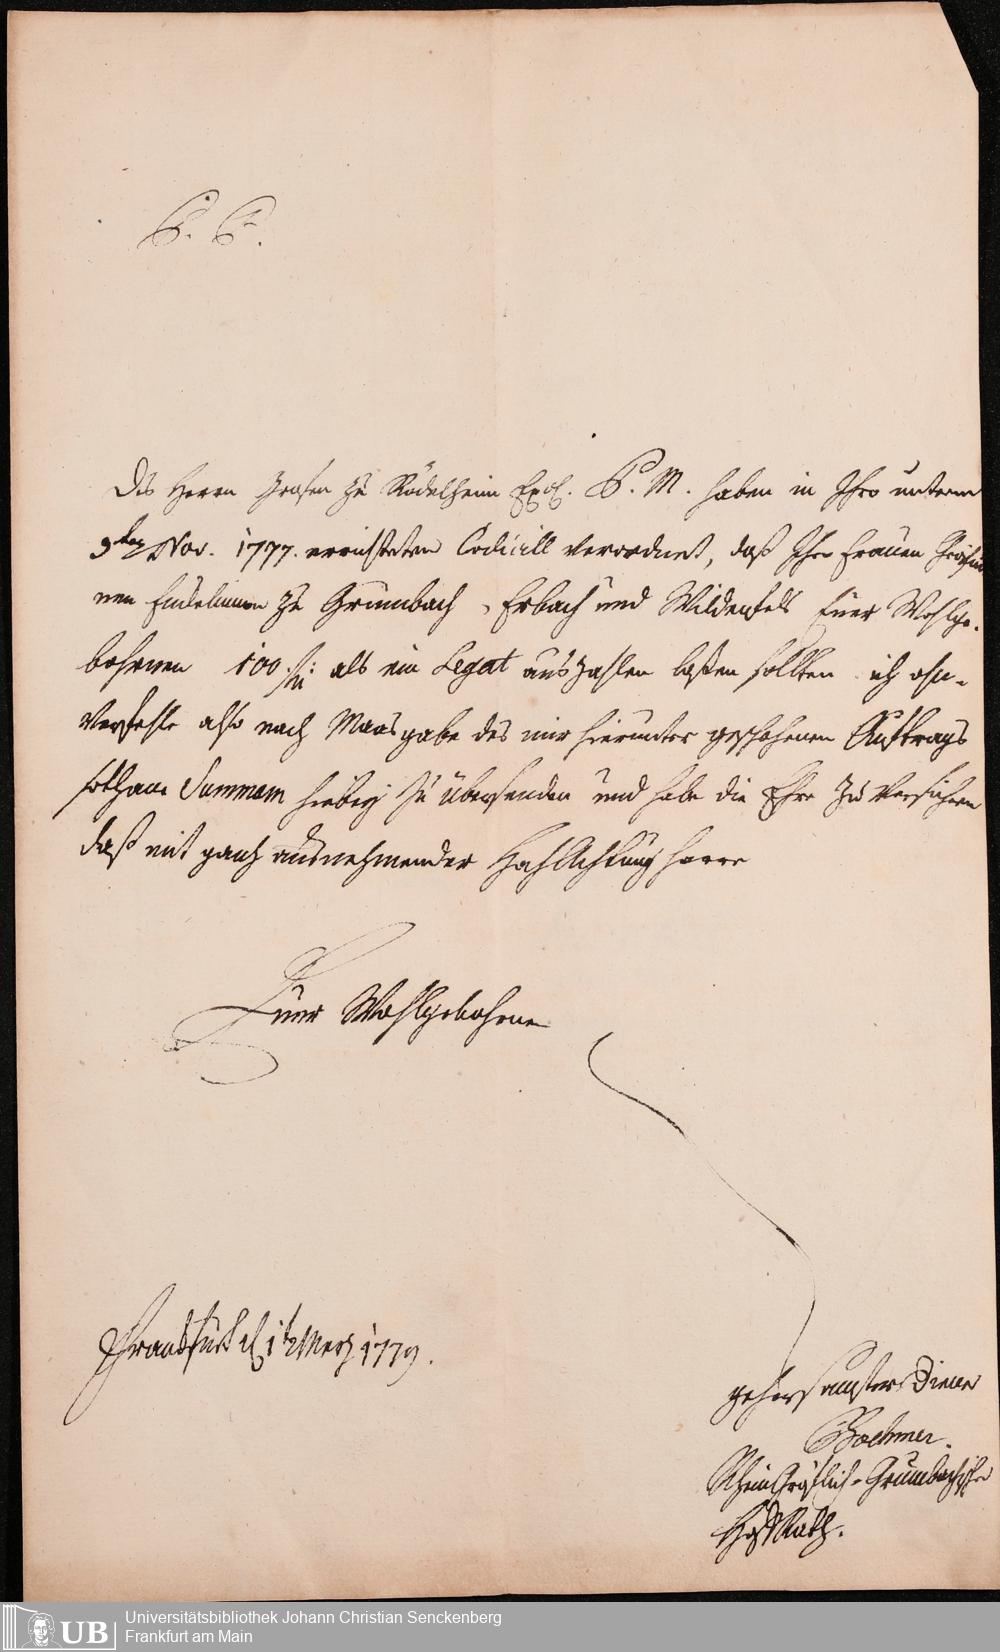 P. P.
Des Herrn Grafen zu Rödelheim Exc. P. M. haben in Ihro unterm
9ten Nov. 1777. errichteten Codicill verordnet, daß Ihre Frauen Gräfin
nen Enckelinnen zu Grumbach, Erbach und Wildenfels Euer Wohlge-
bohrnen 100 als ein Legat auszahlen laßen sollten ich ohn-
verfehle also nach Maasgabe des mir hierunter geschehenen Auftrags
sothane Summam hiebey zu übersenden und habe die Ehre zu versichern
daß mit gantz ausnehmender HochAchtung harre
Euer Wohlgebohrnen
Franckfurt d 1t Merz 1779.
gehorsamster Diener
Boehmer.
RheinGräflich-Grumbachischer
HofRath.
Universitätsbibliothek Johann Christian Senckenberg
UB Frankfurt am Main